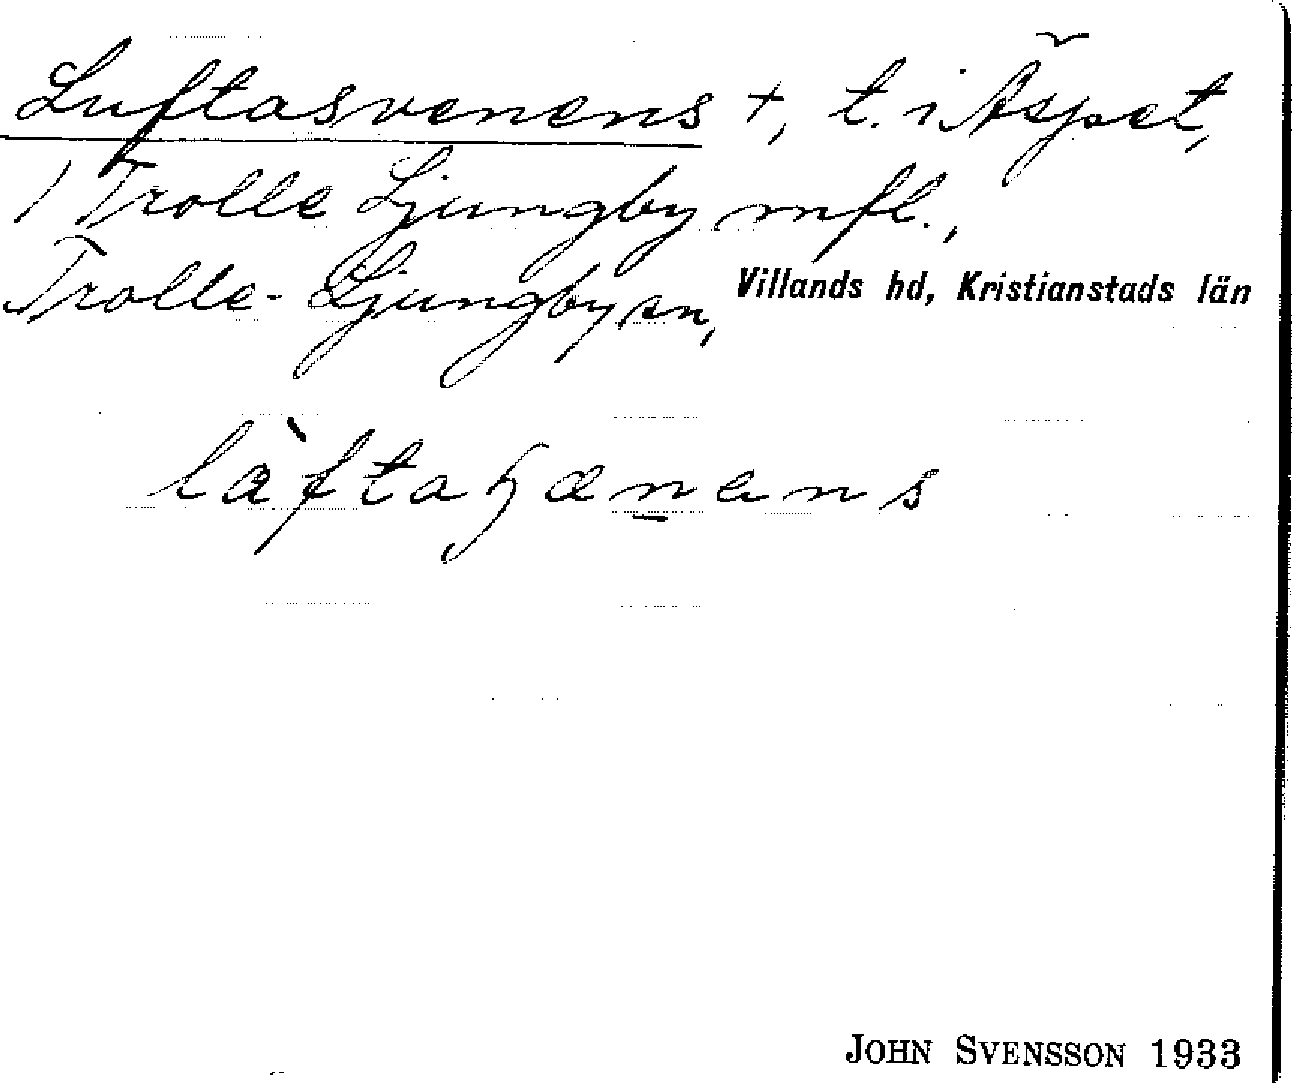 Luftasvenens +, t. i Äspet,
1 Trolle Ljungby mfl.,
Trolle-Ljungby sn, Villands hd, Kristianstads län
JOHN SVENSSON 1933